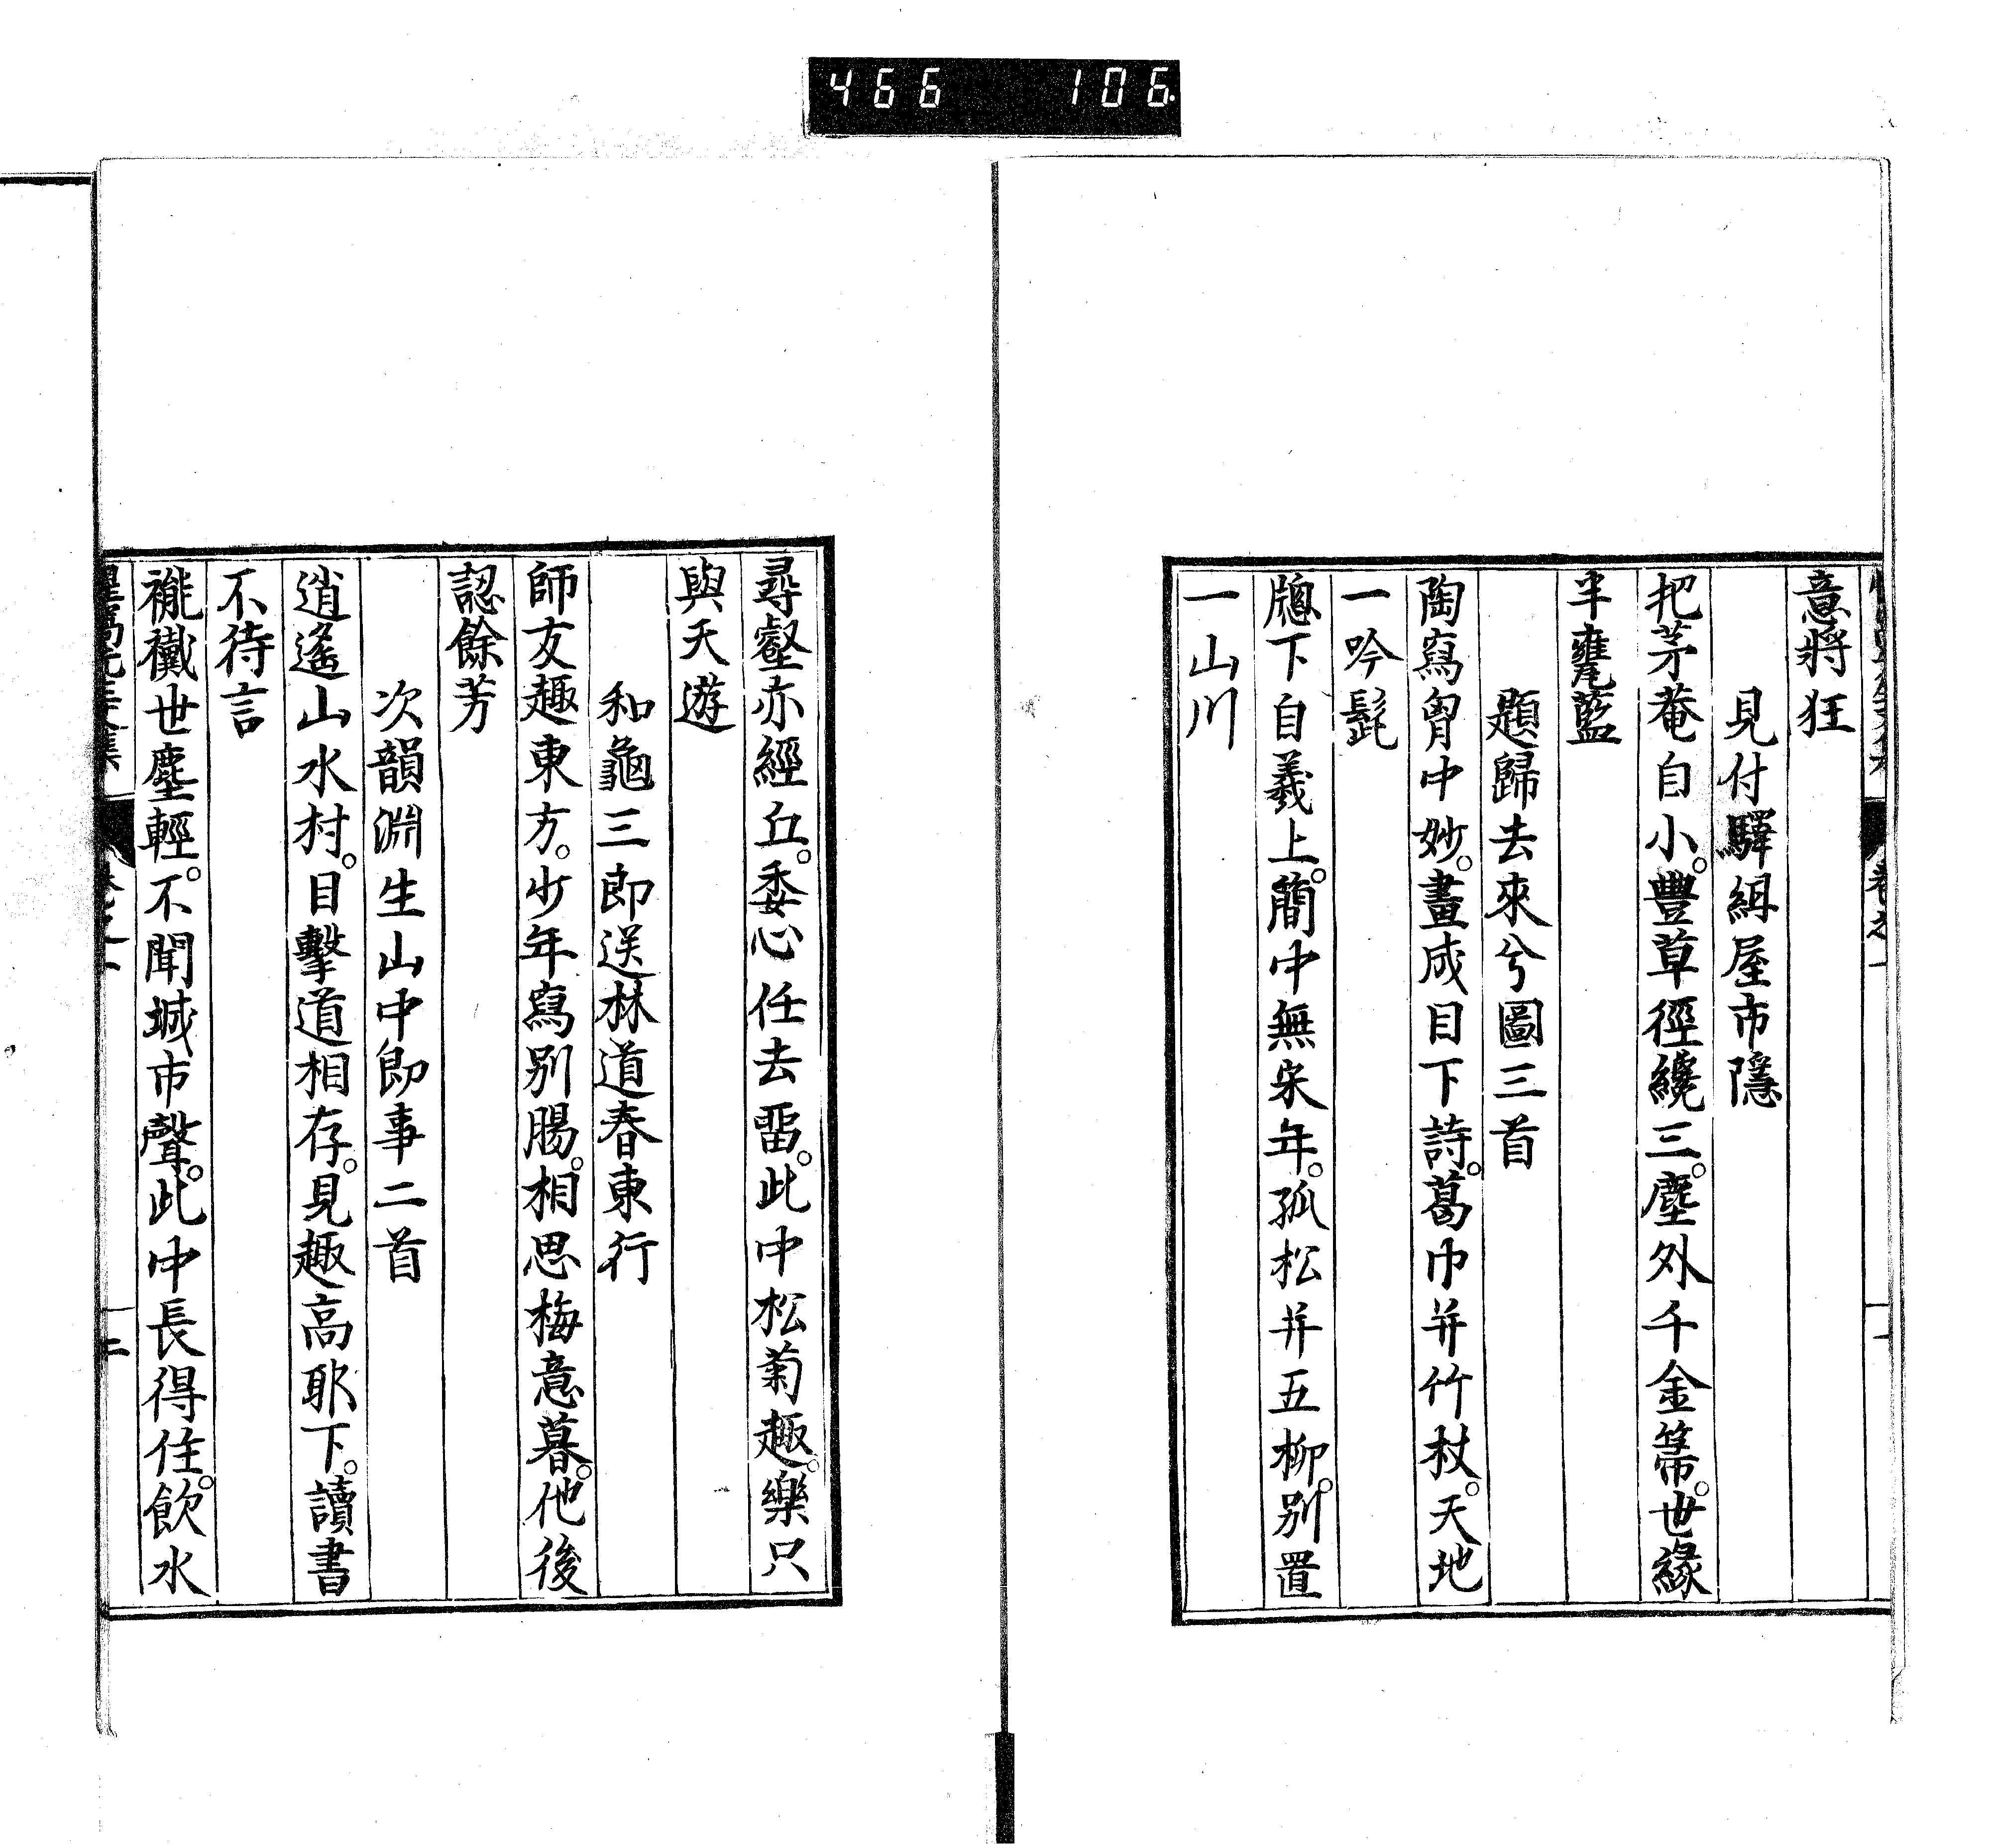 466 106
意將狂
見付驛緝屋市隱
把茅菴自小。豐草徑繞三。塵外千金箒。世緣
半甕藍
題歸去來兮圖三首
陶寫胷中妙。畫成目下詩。葛巾并竹杖。天地
一吟髭
牕下自羲上。簡中無宋年。孤松并五柳。別置
一山川
尋壑亦經丘。委心任去畱。此中松菊趣。樂只
與天遊
和龜三郎送林道春東行
師友趣東方。少年寫別腸。相思梅意暮。他後
認餘芳
次韻淵生山中即事二首
逍遙山水村。目擊道相存。見趣高耶下。讀書
不待言
褦襶世塵輕。不聞城市聲。此中長得住。飲水